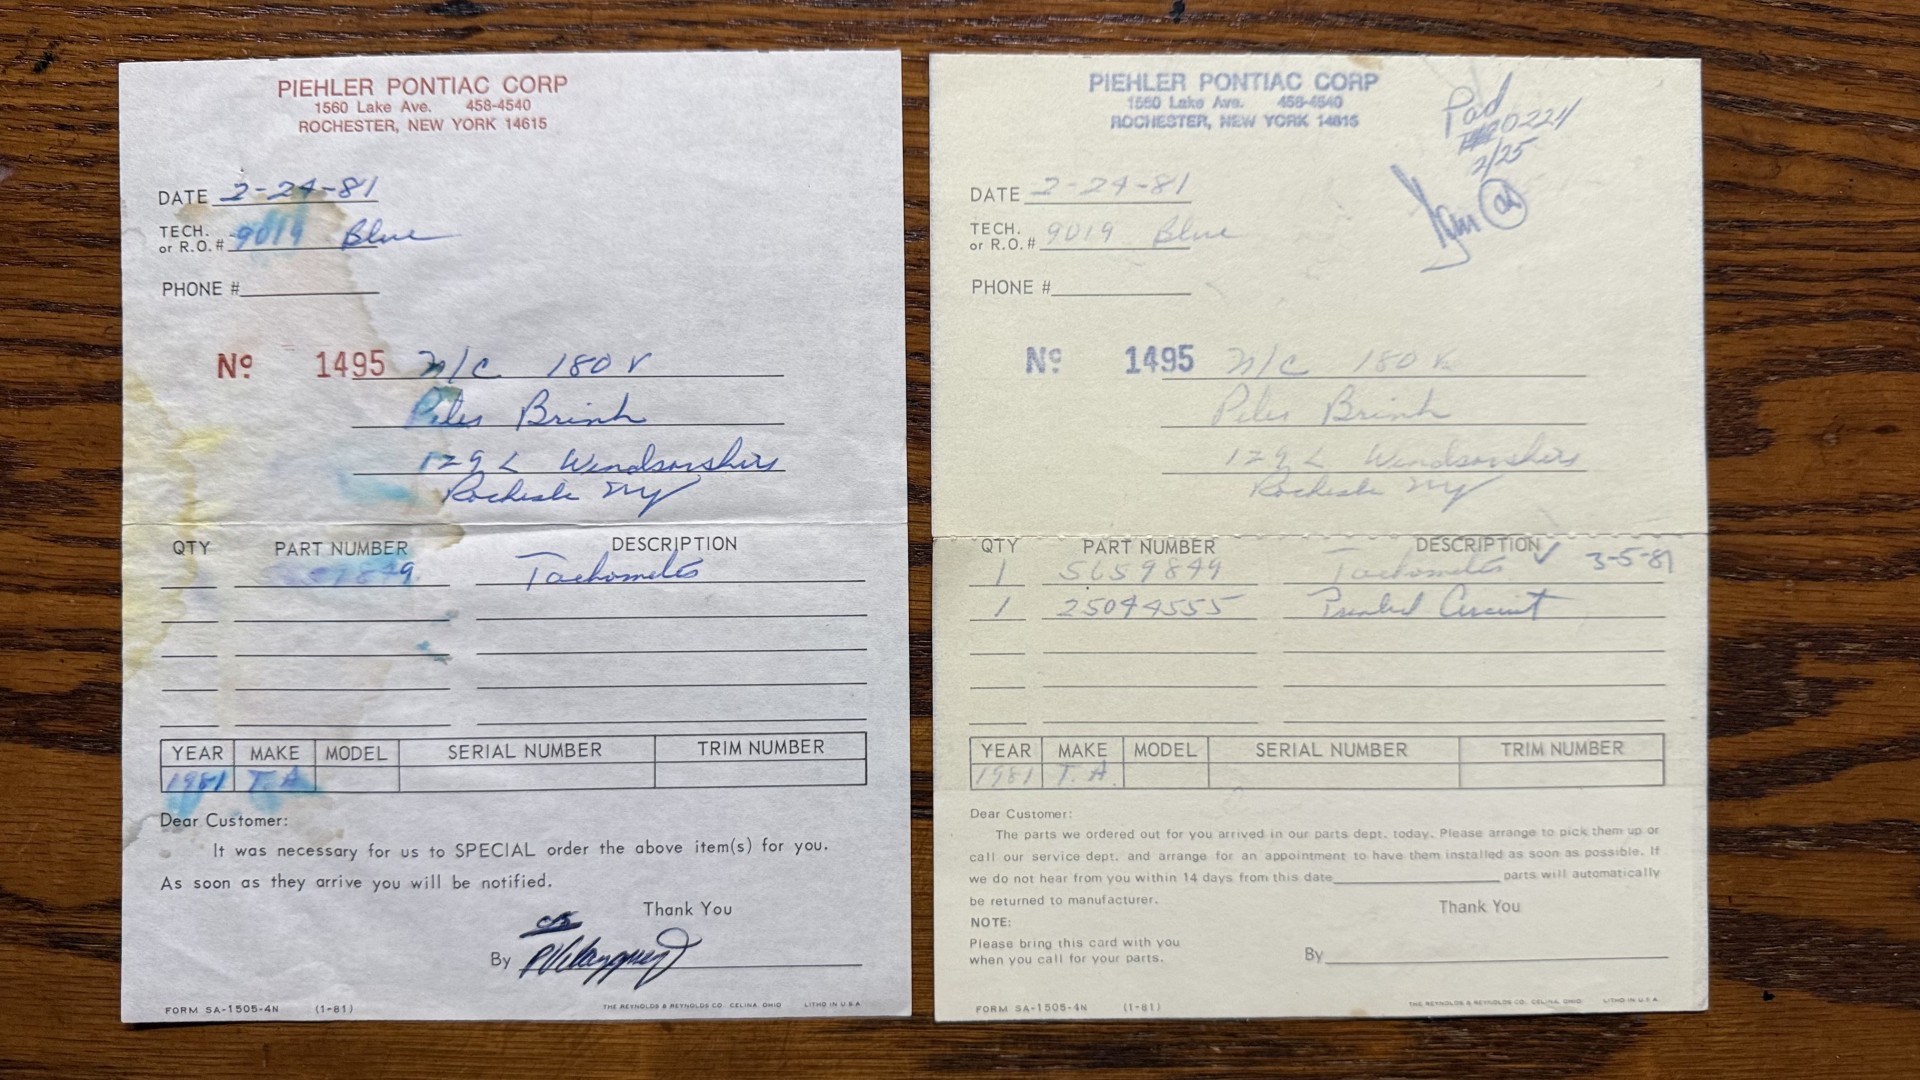 PIEHLER PONTIAC CORP
1560 Lake Ave. 458-4540
ROCHESTER, NEW YORK 14615
DATE 2-24-81
TECH. or R.O.# 9019 Blue
PHONE #
Nº 1495 N/C 180 V
Brink
129 L Windsorshire
Rochester NY
QTY PART NUMBER DESCRIPTION
9849 Tachometer
YEAR MAKE MODEL SERIAL NUMBER TRIM NUMBER
1981 T.A.
Dear Customer:
It was necessary for us to SPECIAL order the above item(s) for you.
As soon as they arrive you will be notified.
Thank You
By P Velazquez
FORM SA-1505-4N (1-81) THE REYNOLDS & REYNOLDS CO., CELINA, OHIO LITHO IN U.S.A.
PIEHLER PONTIAC CORP
1560 Lake Ave. 458-4540
ROCHESTER, NEW YORK 14615
Pad
20224
2/25
DATE 2-24-81
TECH. or R.O.# 9019 Blue
PHONE #
Nº 1495 N/C 180
Brink
129 L Windsorshire
Rochester NY
QTY PART NUMBER DESCRIPTION
1 5659849 Tachometer ✓ 3-5-81
1 25044555 Printed Circuit
YEAR MAKE MODEL SERIAL NUMBER TRIM NUMBER
1981 T.A.
Dear Customer:
The parts we ordered out for you arrived in our parts dept. today. Please arrange to pick them up or
call our service dept. and arrange for an appointment to have them installed as soon as possible. If
we do not hear from you within 14 days from this date parts will automatically
be returned to manufacturer.
Thank You
NOTE:
Please bring this card with you
when you call for your parts.
By
FORM SA-1505-4N (1-81) THE REYNOLDS & REYNOLDS CO., CELINA, OHIO LITHO IN U.S.A.